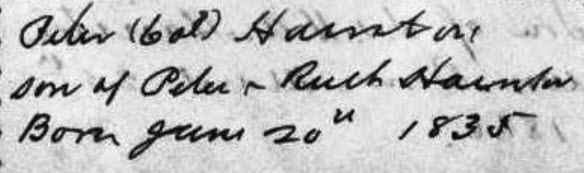 Peter (Col) Hairston
son of Peter & Ruth Hairston
Born June 20" 1835